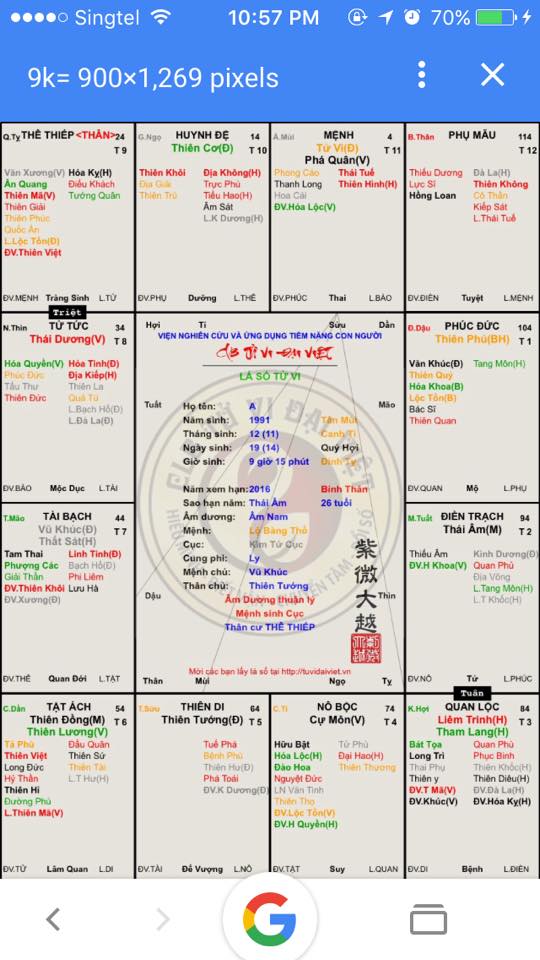 Singtel 10:57 PM 70%
9k= 900×1,269 pixels
Q.Tỵ THÊ THIẾP <THÂN> 24
T 9
Văn Xương(V) Hóa Kỵ(H)
Ân Quang Điếu Khách
Thiên Mã(V) Tướng Quân
Thiên Giải
Thiên Phúc
Quốc Ấn
L.Lộc Tồn(Đ)
ĐV.Thiên Việt
ĐV.MỆNH Tràng Sinh L.TỬ
G.Ngọ HUYNH ĐỆ 14
Thiên Cơ(Đ) T 10
Thiên Khôi Địa Không(H)
Địa Giải Trực Phù
Thiên Trù Tiểu Hao(H)
Âm Sát
L.K Dương(H)
ĐV.PHỤ Dưỡng L.THÊ
Ấ.Mùi MỆNH 4
Tử Vi(Đ) T 11
Phá Quân(V)
Phong Cáo Thái Tuế
Thanh Long Thiên Hình(H)
Hoa Cái
ĐV.Hóa Lộc(V)
ĐV.PHÚC Thai L.BÀO
B.Thân PHỤ MẪU 114
T 12
Thiếu Dương Đà La(H)
Lực Sĩ Thiên Không
Hồng Loan Cô Thần
Kiếp Sát
L.Thái Tuế
ĐV.ĐIỀN Tuyệt L.MỆNH
Triệt
N.Thìn TỬ TỨC 34
Thái Dương(V) T 8
Hóa Quyền(V) Hỏa Tinh(Đ)
Phúc Đức Địa Kiếp(H)
Tấu Thư Thiên La
Thiên Đức Quả Tú
L.Bạch Hổ(Đ)
L.Đà La(Đ)
ĐV.BÀO Mộc Dục L.TÀI
Hợi Tí Sửu Dần
VIỆN NGHIÊN CỨU VÀ ỨNG DỤNG TIỀM NĂNG CON NGƯỜI
LÁ SỐ TỬ VI
Tuất Mão
Họ tên: A
Năm sinh: 1991 Tân Mùi
Tháng sinh: 12 (11) Canh Tí
Ngày sinh: 19 (14) Quý Hợi
Giờ sinh: 9 giờ 15 phút Đinh Tỵ
Năm xem hạn: 2016 Bính Thân
Sao hạn năm: Thái Âm 26 tuổi
Âm dương: Âm Nam
Mệnh: Lộ Bàng Thổ
Cục: Kim Tứ Cục
Cung phi: Ly
Mệnh chủ: Vũ Khúc
Thân chủ: Thiên Tướng
Dậu Thìn
Âm Dương thuận lý
Mệnh sinh Cục
Thân cư THÊ THIẾP
紫微大越
Mời các bạn lấy lá số tại http://tuvidaiviet.vn
Thân Mùi Ngọ Tỵ
Đ.Dậu PHÚC ĐỨC 104
Thiên Phủ(BH) T 1
Văn Khúc(Đ) Tang Môn(H)
Thiên Quý
Hóa Khoa(B)
Lộc Tồn(B)
Bác Sĩ
Thiên Quan
ĐV.QUAN Mộ L.PHỤ
T.Mão TÀI BẠCH 44
Vũ Khúc(Đ) T 7
Thất Sát(H)
Tam Thai Linh Tinh(Đ)
Phượng Các Bạch Hổ(Đ)
Giải Thần Phi Liêm
ĐV.Thiên Khôi Lưu Hà
ĐV.Xương(Đ)
ĐV.THÊ Quan Đới L.TẬT
M.Tuất ĐIỀN TRẠCH 94
Thái Âm(M) T 2
Thiếu Âm Kình Dương(Đ)
ĐV.H Khoa(V) Quan Phù
Địa Võng
L.Tang Môn(H)
L.T Khốc(H)
ĐV.NÔ Tử L.PHÚC
Tuần
C.Dần TẬT ÁCH 54
Thiên Đồng(M) T 6
Thiên Lương(V)
Tả Phù Đẩu Quân
Thiên Việt Thiên Sứ
Long Đức Thiên Tài
Hỷ Thần L.T Hư(H)
Thiên Hỉ
Đường Phù
L.Thiên Mã(V)
ĐV.TỬ Lâm Quan L.DI
T.Sửu THIÊN DI 64
Thiên Tướng(Đ) T 5
Tuế Phá
Bệnh Phù
Thiên Hư(Đ)
Phá Toái
ĐV.K Dương(Đ)
ĐV.TÀI Đế Vượng L.NÔ
C.Tí NÔ BỘC 74
Cự Môn(V) T 4
Hữu Bật Tử Phù
Hóa Lộc(H) Đại Hao(H)
Đào Hoa Thiên Thương
Nguyệt Đức
LN Văn Tinh
Thiên Thọ
ĐV.Lộc Tồn(V)
ĐV.H Quyền(H)
ĐV.TẬT Suy L.QUAN
K.Hợi QUAN LỘC 84
Liêm Trinh(H) T 3
Tham Lang(H)
Bát Tọa Quan Phủ
Long Trì Phục Binh
Thai Phụ Thiên Khốc(H)
Thiên y Thiên Diêu(H)
ĐV.T Mã(V) ĐV.Đà La(H)
ĐV.Khúc(V) ĐV.Hóa Kỵ(H)
ĐV.DI Bệnh L.ĐIỀN